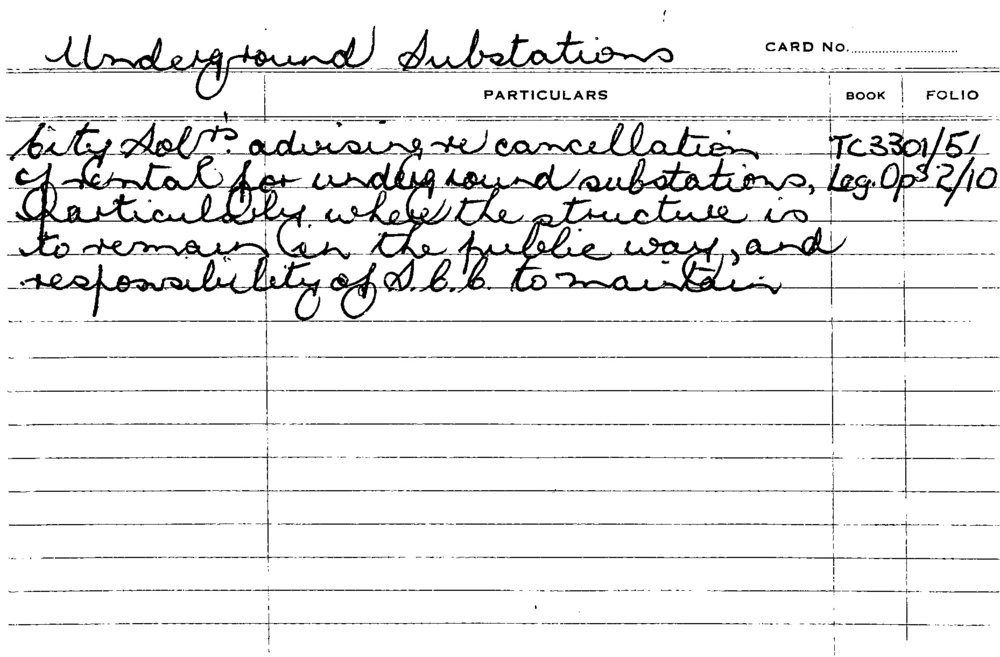 Underground Substations
CARD No.
PARTICULARS BOOK FOLIO
City Solrs. advising re cancellation TC3301/51
of rental for underground substations, Leg. Ops 2/10
Particularly where the structure is
to remain in the public way, and
responsibility of S.C.C. to maintain